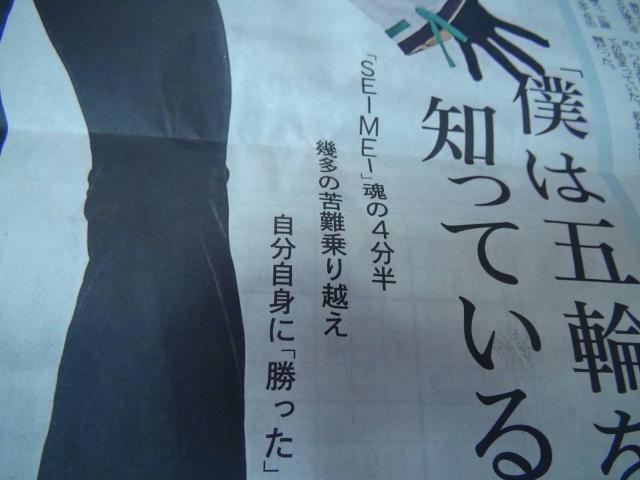 「僕は五輪を
知っている
「SEIMEI」魂の4分半
幾多の苦難乗り越え
自分自身に「勝った」